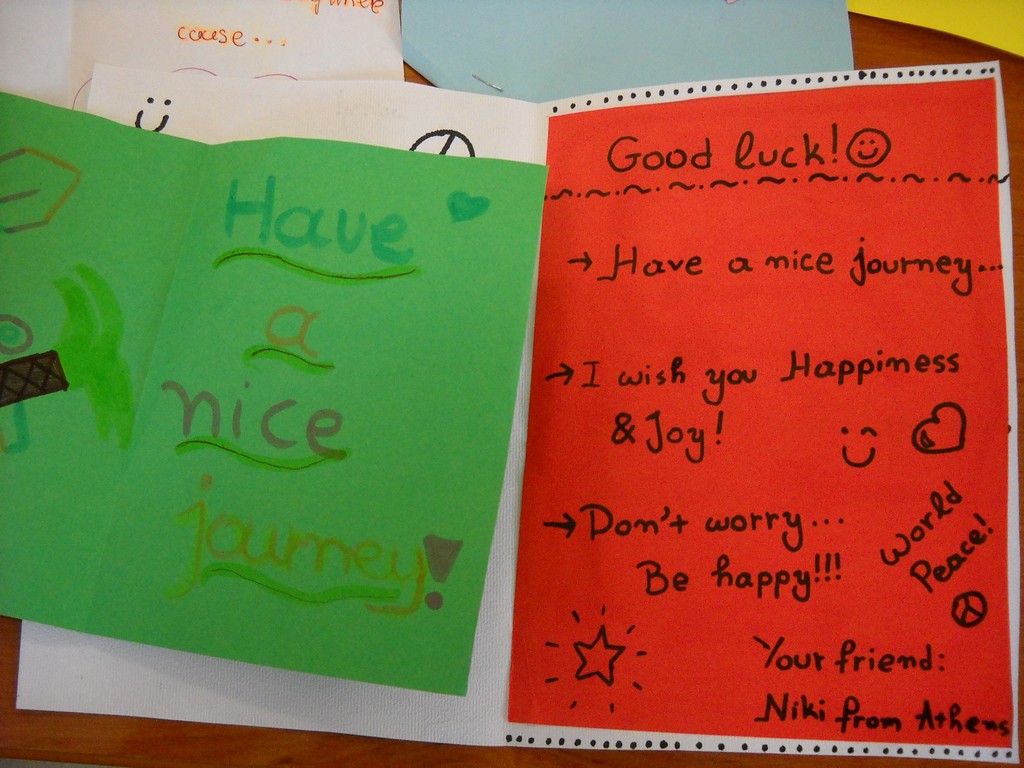 cause...
Have
a
nice
journey!
Good luck!
→ Have a nice journey...
→ I wish you Happiness
& Joy!
→ Don't worry...
Be happy!!!
World
Peace!
Your friend:
Niki from Athens